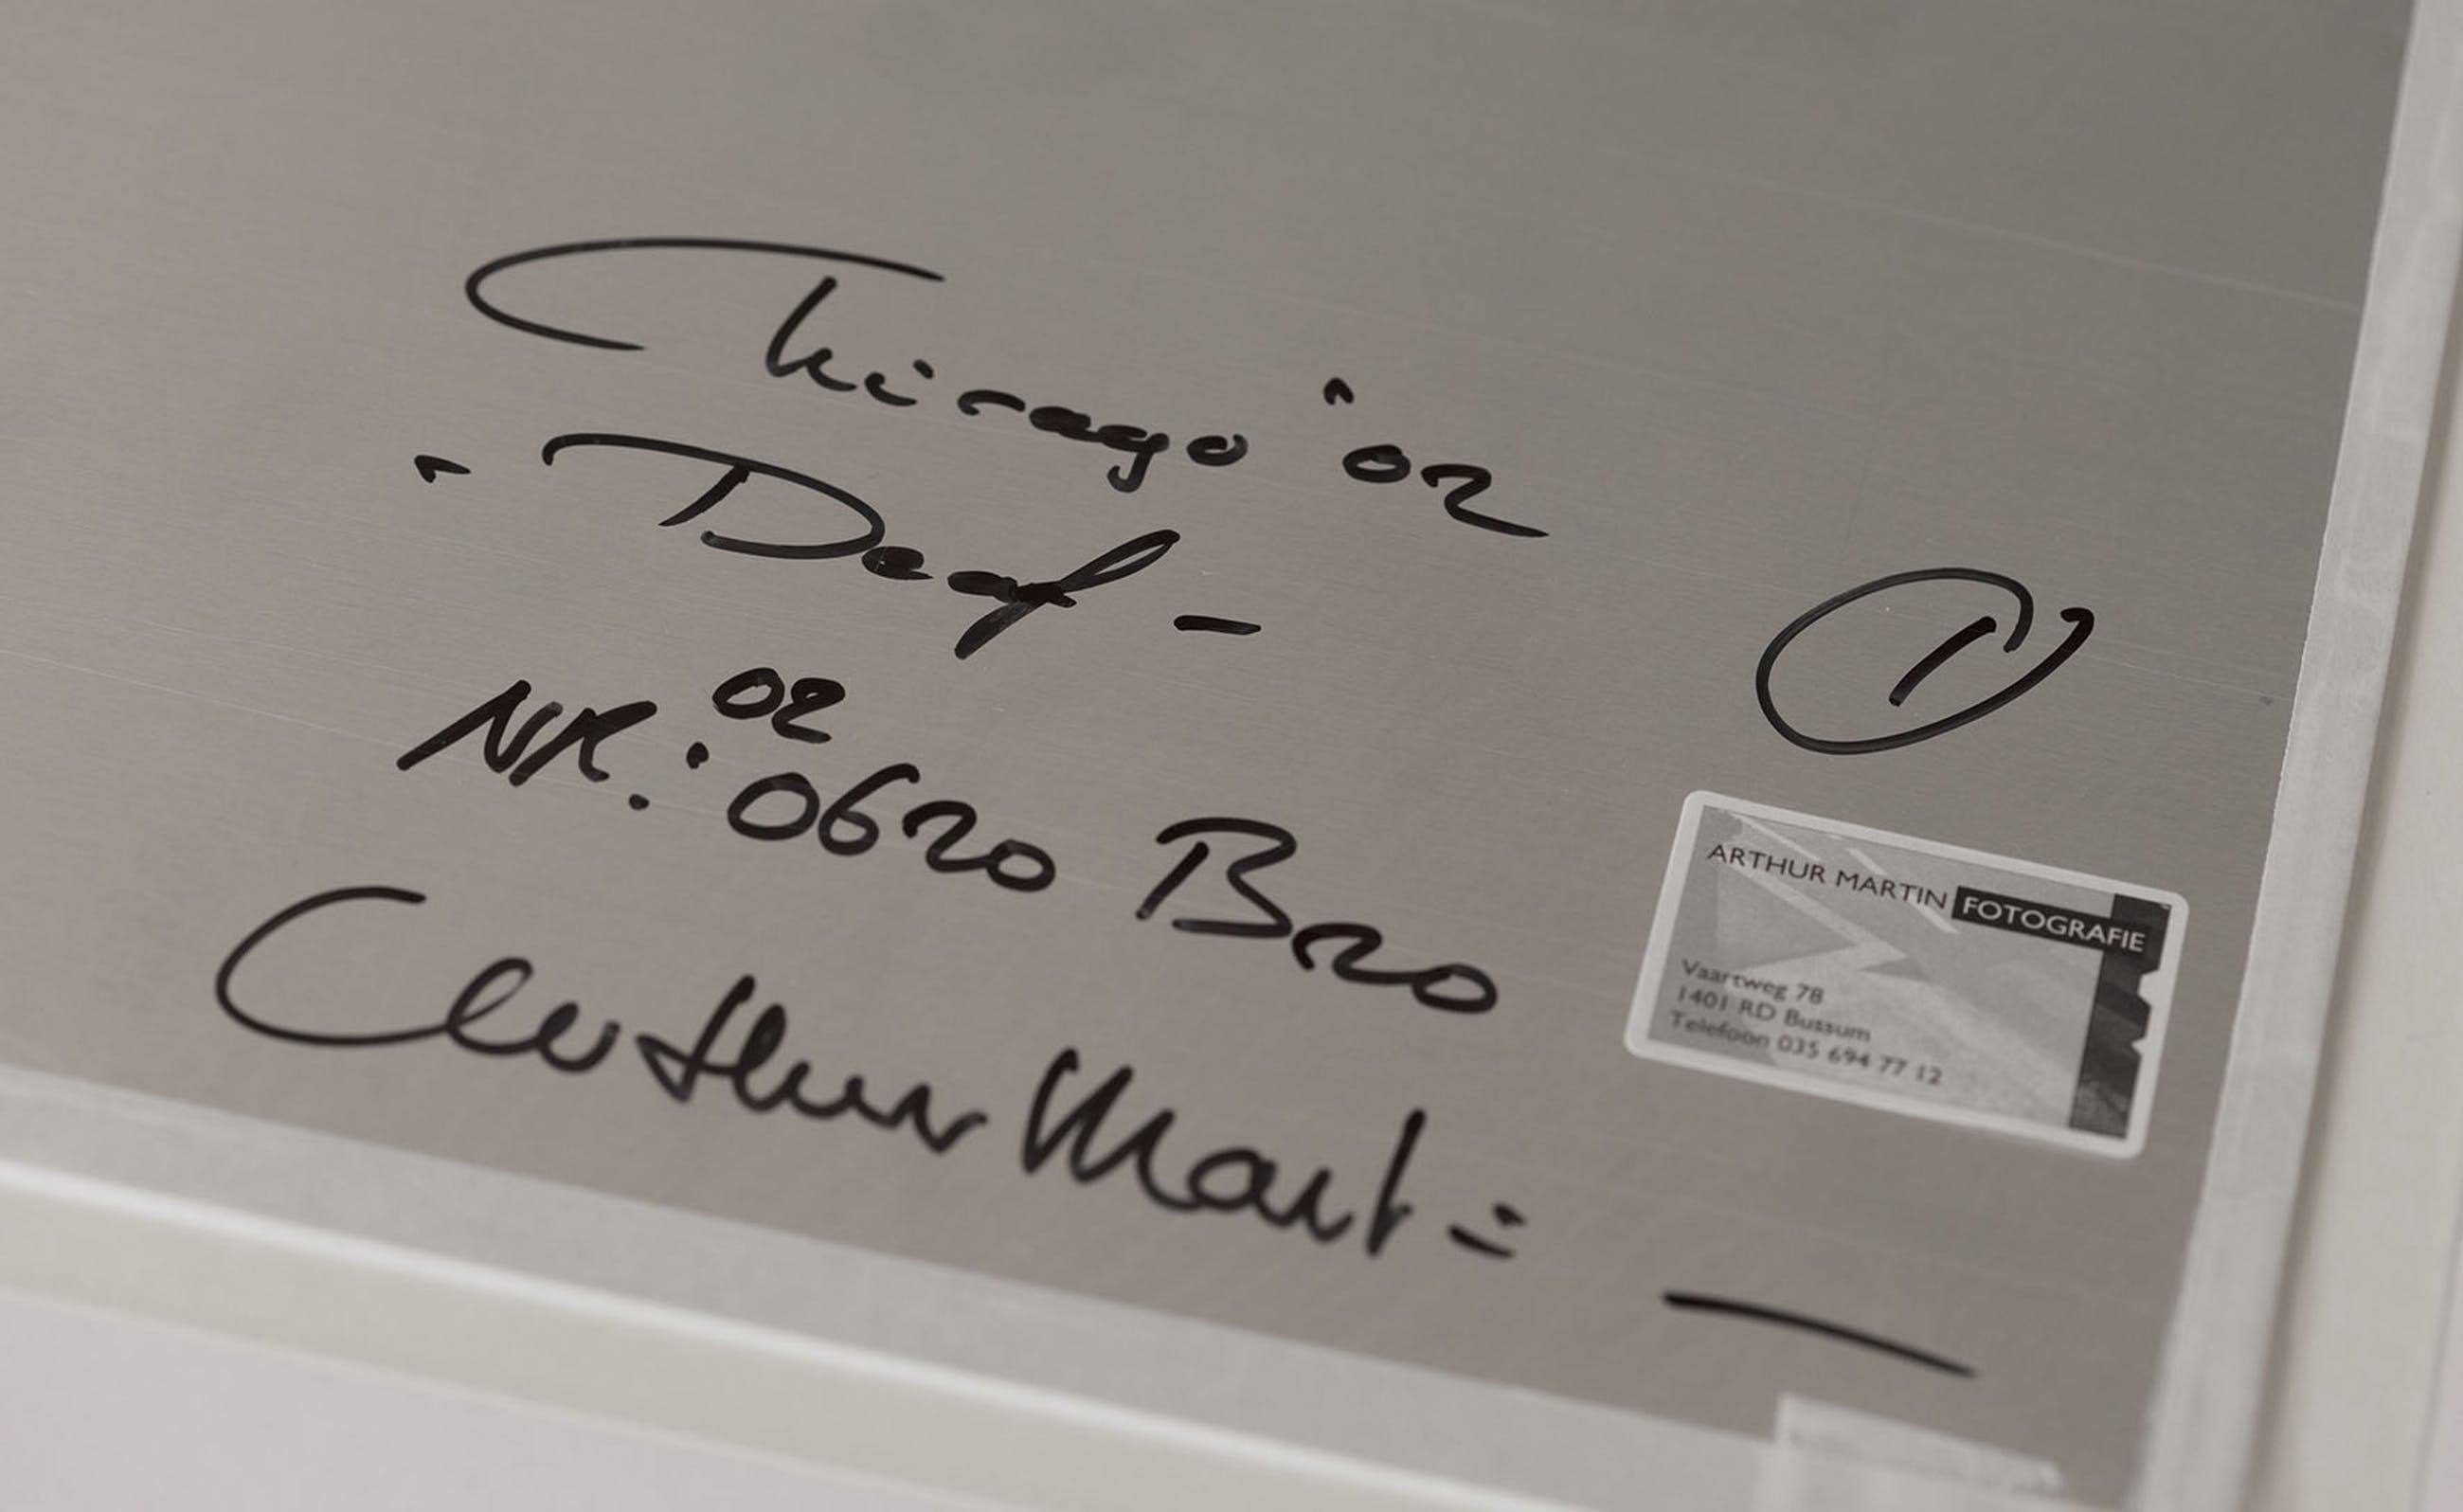 Chicago '02
- Deaf -
02
NR.: 0620 B20
Arthur Martin
1
ARTHUR MARTIN FOTOGRAFIE
Vaartweg 78
1401 RD Bussum
Telefoon 035 694 77 12